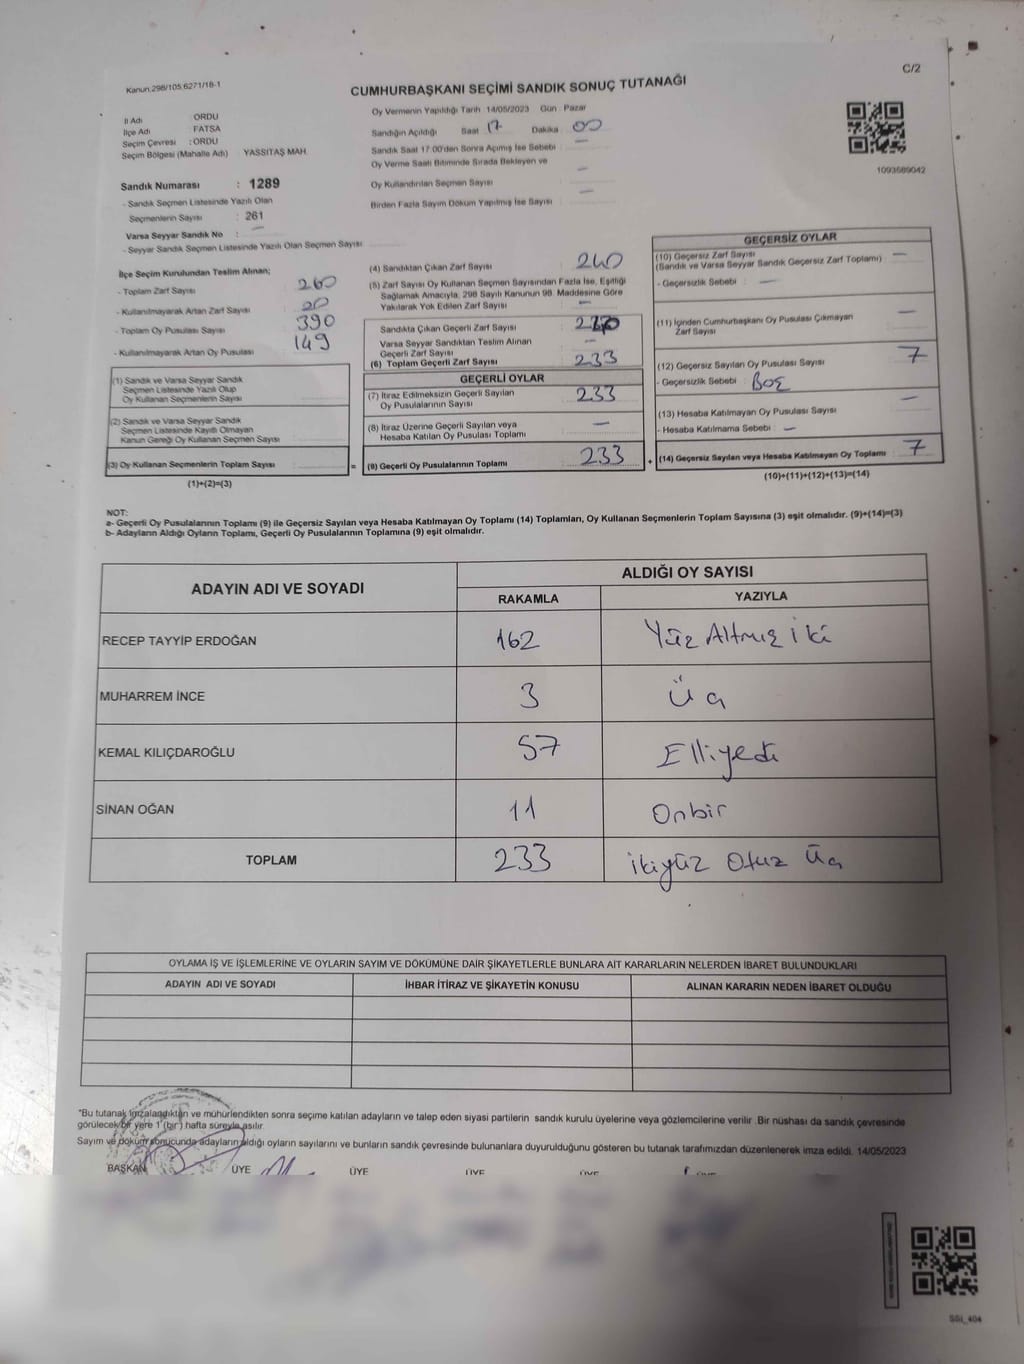 C/2
Kanun:298/105;6271/18-1
CUMHURBAŞKANI SEÇİMİ SANDIK SONUÇ TUTANAĞI
İl Adı ORDU
İlçe Adı FATSA
Seçim Çevresi : ORDU
Seçim Bölgesi (Mahalle Adı) YASSITAŞ MAH.
Sandık Numarası : 1289
- Sandık Seçmen Listesinde Yazılı Olan
Seçmenlerin Sayısı : 261
Varsa Seyyar Sandık No : —
- Seyyar Sandık Seçmen Listesinde Yazılı Olan Seçmen Sayısı
Oy Vermenin Yapıldığı Tarih 14/05/2023 Gün : Pazar
Sandığın Açıldığı Saat 17 Dakika 00
Sandık Saat 17:00'den Sonra Açımış İse Sebebi : —
Oy Verme Saati Bitiminde Sırada Bekleyen ve
Oy Kullandırılan Seçmen Sayısı —
Birden Fazla Sayım Döküm Yapılmış İse Sayısı —
1093689042
İlçe Seçim Kurulundan Teslim Alınan;
- Toplam Zarf Sayısı 260
- Kullanılmayarak Artan Zarf Sayısı 20
- Toplam Oy Pusulası Sayısı 390
- Kullanılmayarak Artan Oy Pusulası 149
(1) Sandık ve Varsa Seyyar Sandık
Seçmen Listesinde Yazılı Olup
Oy Kullanan Seçmenlerin Sayısı
(2) Sandık ve Varsa Seyyar Sandık
Seçmen Listesinde Kayıtlı Olmayan
Kanun Gereği Oy Kullanan Seçmen Sayısı
(3) Oy Kullanan Seçmenlerin Toplam Sayısı =
(1)+(2)=(3)
(4) Sandıktan Çıkan Zarf Sayısı 240
(5) Zarf Sayısı Oy Kullanan Seçmen Sayısından Fazla İse, Eşitliği
Sağlamak Amacıyla, 298 Sayılı Kanunun 98. Maddesine Göre
Yakılarak Yok Edilen Zarf Sayısı —
Sandıkta Çıkan Geçerli Zarf Sayısı
Varsa Seyyar Sandıktan Teslim Alınan
Geçerli Zarf Sayısı —
(6) Toplam Geçerli Zarf Sayısı 233
GEÇERLİ OYLAR
(7) İtiraz Edilmeksizin Geçerli Sayılan
Oy Pusulalarının Sayısı 233
(8) İtiraz Üzerine Geçerli Sayılan veya
Hesaba Katılan Oy Pusulası Toplamı —
(9) Geçerli Oy Pusulalarının Toplamı 233 +
GEÇERSİZ OYLAR
(10) Geçersiz Zarf Sayısı —
(Sandık ve Varsa Seyyar Sandık Geçersiz Zarf Toplamı)
- Geçersizlik Sebebi : —
(11) İçinden Cumhurbaşkanı Oy Pusulası Çıkmayan
Zarf Sayısı —
(12) Geçersiz Sayılan Oy Pusulası Sayısı 7
- Geçersizlik Sebebi : Boş
(13) Hesaba Katılmayan Oy Pusulası Sayısı —
- Hesaba Katılmama Sebebi : —
(14) Geçersiz Sayılan veya Hesaba Katılmayan Oy Toplamı 7
(10)+(11)+(12)+(13)=(14)
NOT:
a- Geçerli Oy Pusulalarının Toplamı (9) ile Geçersiz Sayılan veya Hesaba Katılmayan Oy Toplamı (14) Toplamları, Oy Kullanan Seçmenlerin Toplam Sayısına (3) eşit olmalıdır. (9)+(14)=(3)
b- Adayların Aldığı Oyların Toplamı, Geçerli Oy Pusulalarının Toplamına (9) eşit olmalıdır.
ADAYIN ADI VE SOYADI ALDIĞI OY SAYISI
RAKAMLA YAZIYLA
RECEP TAYYİP ERDOĞAN 162 Yüz Altmış iki
MUHARREM İNCE 3 Üç
KEMAL KILIÇDAROĞLU 57 Elliyedi
SİNAN OĞAN 11 Onbir
TOPLAM 233 ikiyüz Otuz Üç
OYLAMA İŞ VE İŞLEMLERİNE VE OYLARIN SAYIM VE DÖKÜMÜNE DAİR ŞİKAYETLERLE BUNLARA AİT KARARLARIN NELERDEN İBARET BULUNDUKLARI
ADAYIN ADI VE SOYADI İHBAR İTİRAZ VE ŞİKAYETİN KONUSU ALINAN KARARIN NEDEN İBARET OLDUĞU
"Bu tutanak imzalandıktan ve mühürlendikten sonra seçime katılan adayların ve talep eden siyasi partilerin sandık kurulu üyelerine veya gözlemcilerine verilir. Bir nüshası da sandık çevresinde
görülecek bir yere 1 (bir) hafta süreyle asılır.
Sayım ve döküm sonucunda adayların aldığı oyların sayılarını ve bunların sandık çevresinde bulunanlara duyurulduğunu gösteren bu tutanak tarafımızdan düzenlenerek imza edildi. 14/05/2023
BAŞKAN ÜYE ÜYE ÜYE ÜYE
SSI_404